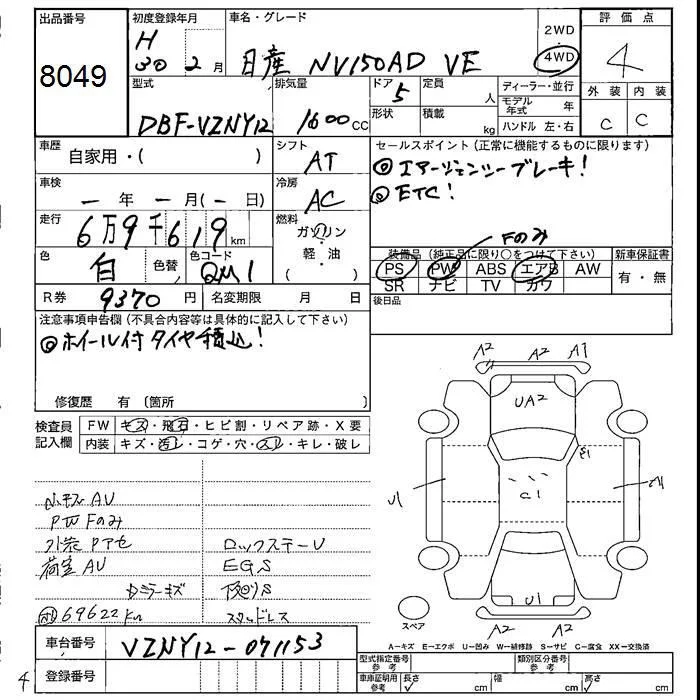 出品番号 初度登録年月 車名・グレード 2WD 評価点
8049 H30 2月 日産 NV150AD VE 4WD 4
型式 排気量 ドア 定員 ディーラー・並行 外装 内装
DBF-VZNY12 1600cc 5 人 モデル年式 年 C C
形状 積載 kg ハンドル 左・右
車歴 シフト セールスポイント(正常に機能するものに限ります)
自家用・( ) AT ◎エマージェンシーブレーキ!
車検 冷房 ◎ETC!
一年 一月(一日) AC
走行 燃料
6万9千619km ガソリン
Fのみ
色 色替 色コード 軽・油 装備品(純正品に限り○をつけて下さい) 新車保証書
白 QM1 ( ) PS PW ABS エアB AW 有・無
SR ナビ TV カワ
R券 9370円 名変期限 月 日 後日品
注意事項申告欄(不具合内容等は具体的に記入して下さい)
◎ホイール付タイヤ積込!
修復歴 有(箇所 )
検査員記入欄 FW キズ・飛石・ヒビ割・リペア跡・X要
内装 キズ・汚レ・コゲ・穴・スレ・キレ・破レ
A2 A2 A1
UA2
S1
C1
U1
U1
A2 A2
AU
PW Fのみ
外装 Pアセ ロックステーU
荷室AU EGS
ミラーキズ 下廻りS
69622km スタッドレス
スペア
A-キズ E-エクボ U-凹み W-補修跡 S-サビ C-腐食 XX-交換済
車台番号 VZNY12-071153
登録番号
型式指定番号 参考 類別区分番号 参考
車庫証明用 参考 長さ cm 幅 cm 高さ cm
4